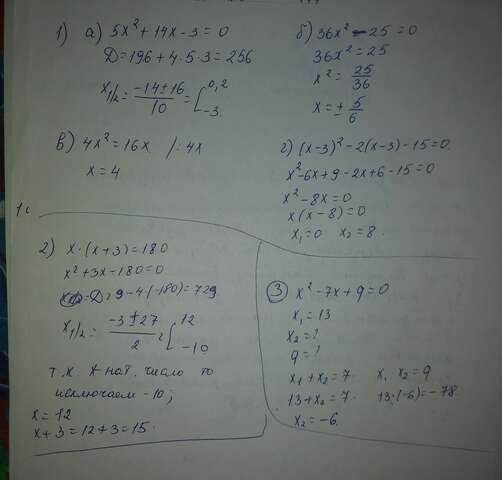 1) а) 5x² + 14x - 3 = 0
D = 196 + 4 · 5 · 3 = 256
x₁/₂ = (-14 ± 16)/10 = [0,2
-3.
б) 36x² - 25 = 0
36x² = 25
x² = 25/36
x = ± 5/6
в) 4x² = 16x /: 4x
x = 4
г) (x-3)² - 2(x-3) - 15 = 0.
x² - 6x + 9 - 2x + 6 - 15 = 0
x² - 8x = 0
x(x - 8) = 0
x₁ = 0 x₂ = 8.
2) x · (x + 3) = 180
x² + 3x - 180 = 0
D = 9 - 4·(-180) = 729
x₁/₂ = (-3 ± 27)/2 = [12
-10
т.к. x нат. число то
исключаем -10;
x = 12
x + 3 = 12 + 3 = 15.
3 x² - 7x + q = 0
x₁ = 13
x₂ = ?
q = ?
x₁ + x₂ = 7 x₁ x₂ = q
13 + x₂ = 7. 13·(-6) = -78
x₂ = -6.